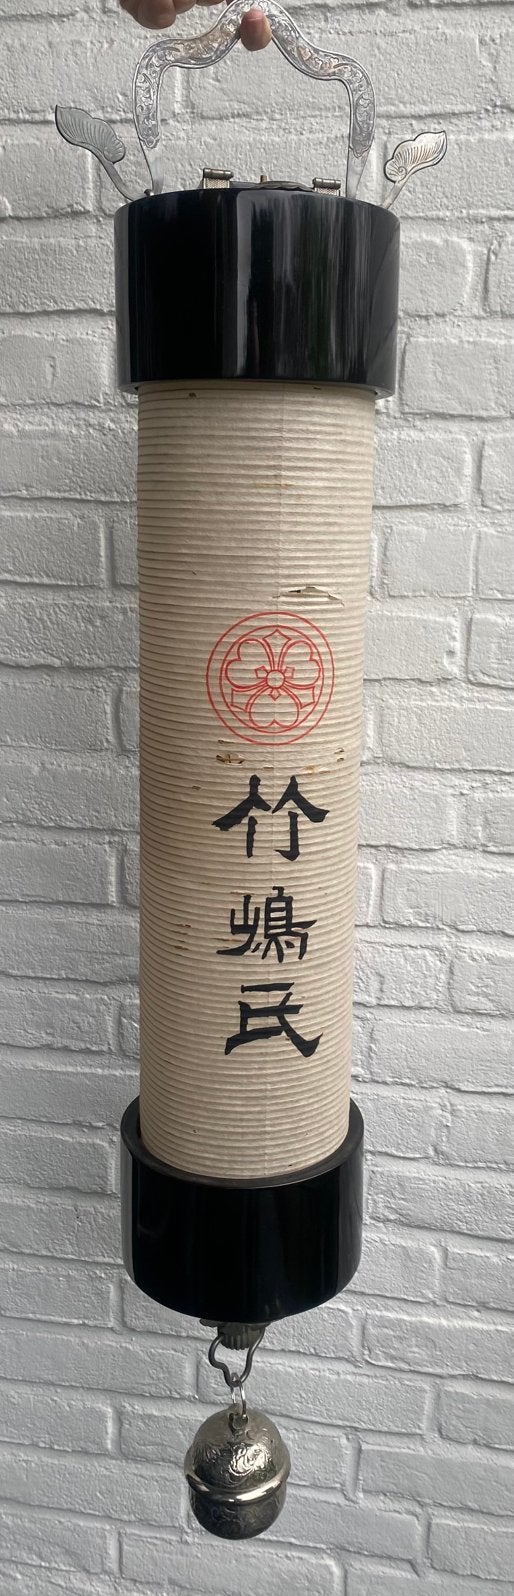 竹嶋氏